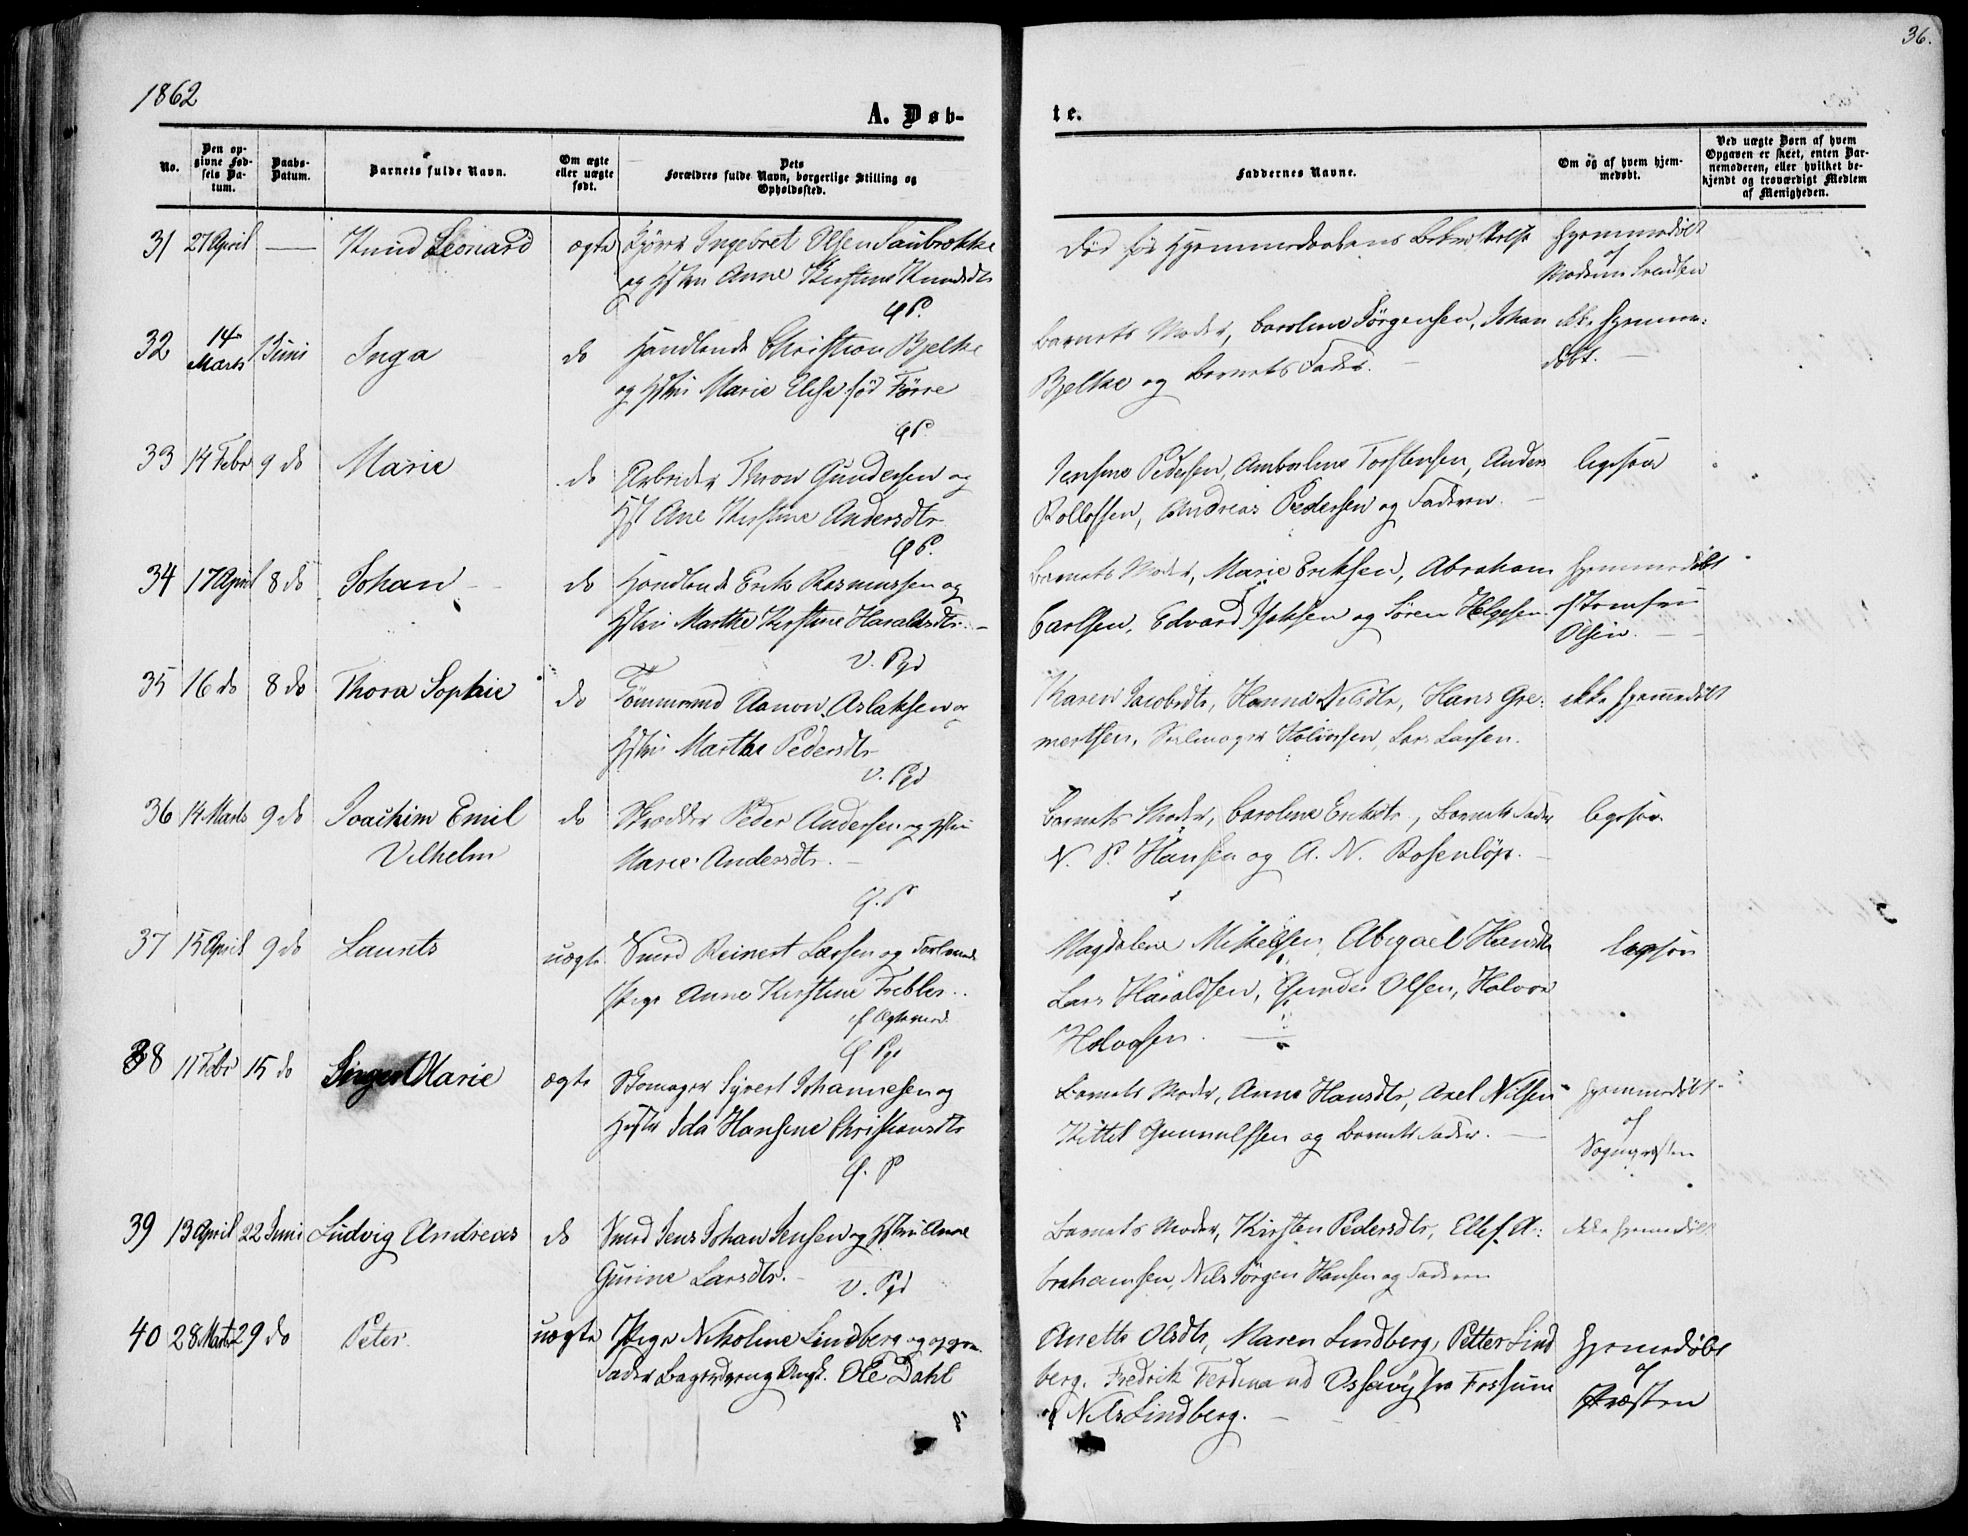 1862
36.
A. Døb-
te.
No.
Den op-
givne Fød-
sels Da-
tum.
Daabs-
Datum.
Barnets fulde Navn.
Om ægte
eller uægte
født.
Dets
Forældres fulde Navn, borgerlige Stilling og
Opholdssted.
Faddernes Navne.
Om og af hvem hjem-
medøbt.
Ved uægte Børn af hvem
Opgaven er skeet, enten Bar-
nemoderen, eller hvilket be-
kjendt og troværdigt Medlem
af Menigheden.
31 27 April — Knud Leonard ægte Ingebret Olsen
og Hstru Anne Kirstine Knudsdtr
Død før Hjemmedaabens Bekræftelse hjemmedøbt
af
Svendsen
G P.
32 14 Marts 1 Juni Inga do Handlende Christian Bjelke
og Hstru Marie Elise fød Førre
Barnets Moder, Caroline Jørgensen, Johan ikke hjemme-
Bjelke og Barnets Fader. — døbt. —
G P.
33 14 Febr 9 do Marie do Arbeider Thron Gundersen og
Hst Ane Kirstine Andersdtr
Jensine Pedersen, Torstensen, Anders ligesaa
Rollefsen, Andreas Pedersen og Faderen. —
G P.
34 17 April 8 do Johan — do Handlende Erik Rasmussen og
Hstru Marthe Kirstine Haraldsdtr. —
Barnets Moder, Marie Eriksen, Abraham hjemmedøbt
Carlsen, Edvard Isaksen og Søren Helgesen. af
Olsen. —
V. Pgd
35 16 do 8 do Thora Sophie do Tømmermand Aanon Aslaksen og
Hstru Marthe Pedersdtr
Karen Jacobsdtr, Hanna Nilsdtr, Hans Gre- ikke hjemmedøbt
mertsen, Seilmager Halvorsen, Lars Larsen.
V. Pgd
36 14 Marts 9 do Joachim Emil do Skrædder Peder Andersen og Hstru
Vilhelm Marie Andersdtr. —
Barnets Moder, Caroline Eriksdtr, Barnets Fader ligesaa
N. P. Hansen og A. N. Rosenløv. —
G. P
37 15 April 9 do Laurits uægte Smed Reinert Larsen og
Pige Anne Kirstine Trebler.
Magdalene Mikelsen, Abigael Hansdtr ligesaa
Lars Haraldsen, Gunder Olsen, Halvor
Halvorsen. —
G Pgd
38 11 Febr 15 do Inger Marie ægte Skomager Syvert Johannesen og
Hustru Ida Hansine Christiansdtr
Barnets Moder, Anne Hansdtr, Axel Nilsen hjemmedøbt
Kittel Gunnulfsen og Barnets Fader. — af
Sognepræsten
G. P
39 13 April 22 Juni Ludvig Andreas do Smed Jens Johan Jensen og Hstru Anne
Gurine Larsdtr. —
Barnets Moder, Kirsten Pedersdtr, Ellef A- ikke hjemmedøbt
brahamsen, Nils Jørgen Hansen og Faderen
V. Pgd
40 28 Marts 29 do Peter. uægte Pige Nikoline Lindberg og opgiv.
Fader Bagerdreng Ungk. Ole Dahl
Anette Olsdtr, Maren Lindberg, Petter Lind hjemmedøbt
berg, Fredrik Ferdinand Fossum af
og Nils Lindberg. — Præsten